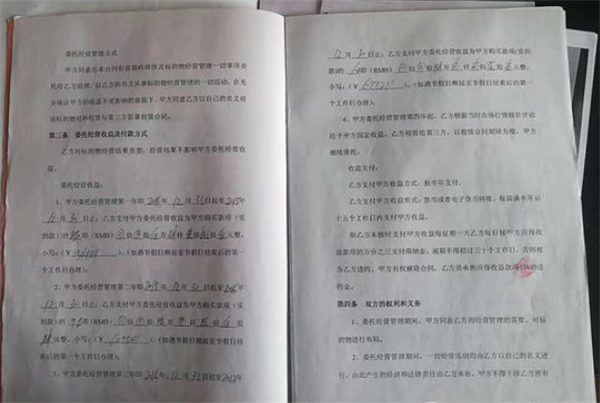 委托经营管理方式
甲方同意在本合同有效期内将涉及标的物经营管理一切事项委
托给乙方处理，以乙方的名义从事标的物经营管理的一切活动。在充
分保证甲方的收益不受影响的前提下，甲方同意乙方以自己的名义将
该标的物对外租赁与第三方签署租赁合同。
第三条 委托经营收益及付款方式
乙方对标的物经营结果负责，经营结果不影响甲方委托经营收
益。
委托经营收益：
1、甲方委托经营管理第一年即 年12月31日起至
12月30日止：乙方支付甲方委托经营收益为甲方购买款项（实
到款）的 (RMB) 元整，
小写：（￥ ）。（如遇节假日顺延至节假日结束后的第一
个工作日办理）；
2、甲方委托经营管理第二年即 年12月31日起至
12月30日止：乙方支付甲方委托经营收益为甲方购买款项（实
到款）的 (RMB)
小写：（￥ ）。（如遇节假日顺延至节假日结束
后的第一个工作日办理）；
3、甲方委托经营管理第三年即 年12月31日起至
12月30日止：乙方支付甲方委托经营收益为甲方购买款项（实到
款）的 (RMB) 元整，
小写：（￥ ）。（如遇节假日顺延至节假日结束后的第一
个工作日办理）
4、甲方委托经营管理第四年起，乙方根据当时市场行情核价评近
给予甲方固定收益。乙方租赁给第三方，以租赁合同期限为准，甲方
继续委托。
收益支付：
乙方支付甲方收益方式：按半年支付。
乙方支付甲方收益形式：货币或者电子货币转账，每届满半年后
十五个工作日内支付甲方收益。
如乙方未按时支付甲方收益每延期一天乙方每日按甲方应得收
益款项的万分之三支付滞纳金。逾期不得超过三十个工作日，否则视
为乙方违约，甲方有权解除合同。乙方须承担应得收益款项 的违
约金。
第四条 双方的权利和义务
1、委托经营管理期间，甲方同意乙方因经营管理的需要，对标
的物进行布局。
2、委托经营管理期间，一切经营活动均由乙方以自己的名义进
行，由此产生的经济和法律责任由乙方承担，甲方不得干涉乙方所有